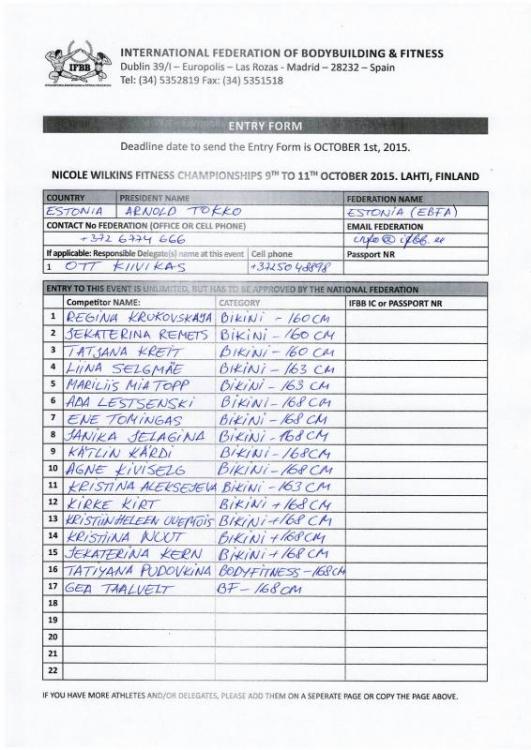 IFBB
INTERNATIONAL FEDERATION OF BODYBUILDING & FITNESS
Dublin 39/I – Europolis – Las Rozas - Madrid – 28232 – Spain
Tel: (34) 5352819 Fax: (34) 5351518
ENTRY FORM
Deadline date to send the Entry Form is OCTOBER 1st, 2015.
NICOLE WILKINS FITNESS CHAMPIONSHIPS 9TH TO 11TH OCTOBER 2015. LAHTI, FINLAND
COUNTRY PRESIDENT NAME FEDERATION NAME
ESTONIA ARNOLD TOKKO ESTONIA (EBFA)
CONTACT No FEDERATION (OFFICE OR CELL PHONE) EMAIL FEDERATION
+372 6774 666 info@ifbb.ee
If applicable: Responsible Delegate(s) name at this event Cell phone Passport NR
1 OTT KIIVIKAS +3725048898
ENTRY TO THIS EVENT IS UNLIMITED, BUT HAS TO BE APPROVED BY THE NATIONAL FEDERATION
Competitor NAME: CATEGORY IFBB IC or PASSPORT NR
1 REGINA KRUKOVSKAJA BIKINI - 160 CM
2 JEKATERINA REMETS BIKINI - 160 CM
3 TATJANA KREIT BIKINI - 160 CM
4 LIINA SELGMÄE BIKINI - 163 CM
5 MARILIIS MIA TOPP BIKINI - 163 CM
6 ADA LESTSENSKI BIKINI - 168 CM
7 ENE TOMINGAS BIKINI - 168 CM
8 JANIKA JELAGINA BIKINI - 168 CM
9 KÄTLIN KÄRDI BIKINI - 168CM
10 AGNE KIVISELG BIKINI - 168 CM
11 KRISTINA ALEKSEJEVA BIKINI - 163 CM
12 KIRKE KIRT BIKINI + 168 CM
13 KRISTIIN HELEEN UUEMÕIS BIKINI + 168 CM
14 KRISTIINA NUUT BIKINI + 168 CM
15 JEKATERINA KERN BIKINI + 168 CM
16 TATIYANA PUDOVKINA BODYFITNESS - 168CM
17 GEA TAALVELT BF - 168 CM
18
19
20
21
22
IF YOU HAVE MORE ATHLETES AND/OR DELEGATES, PLEASE ADD THEM ON A SEPERATE PAGE OR COPY THE PAGE ABOVE.